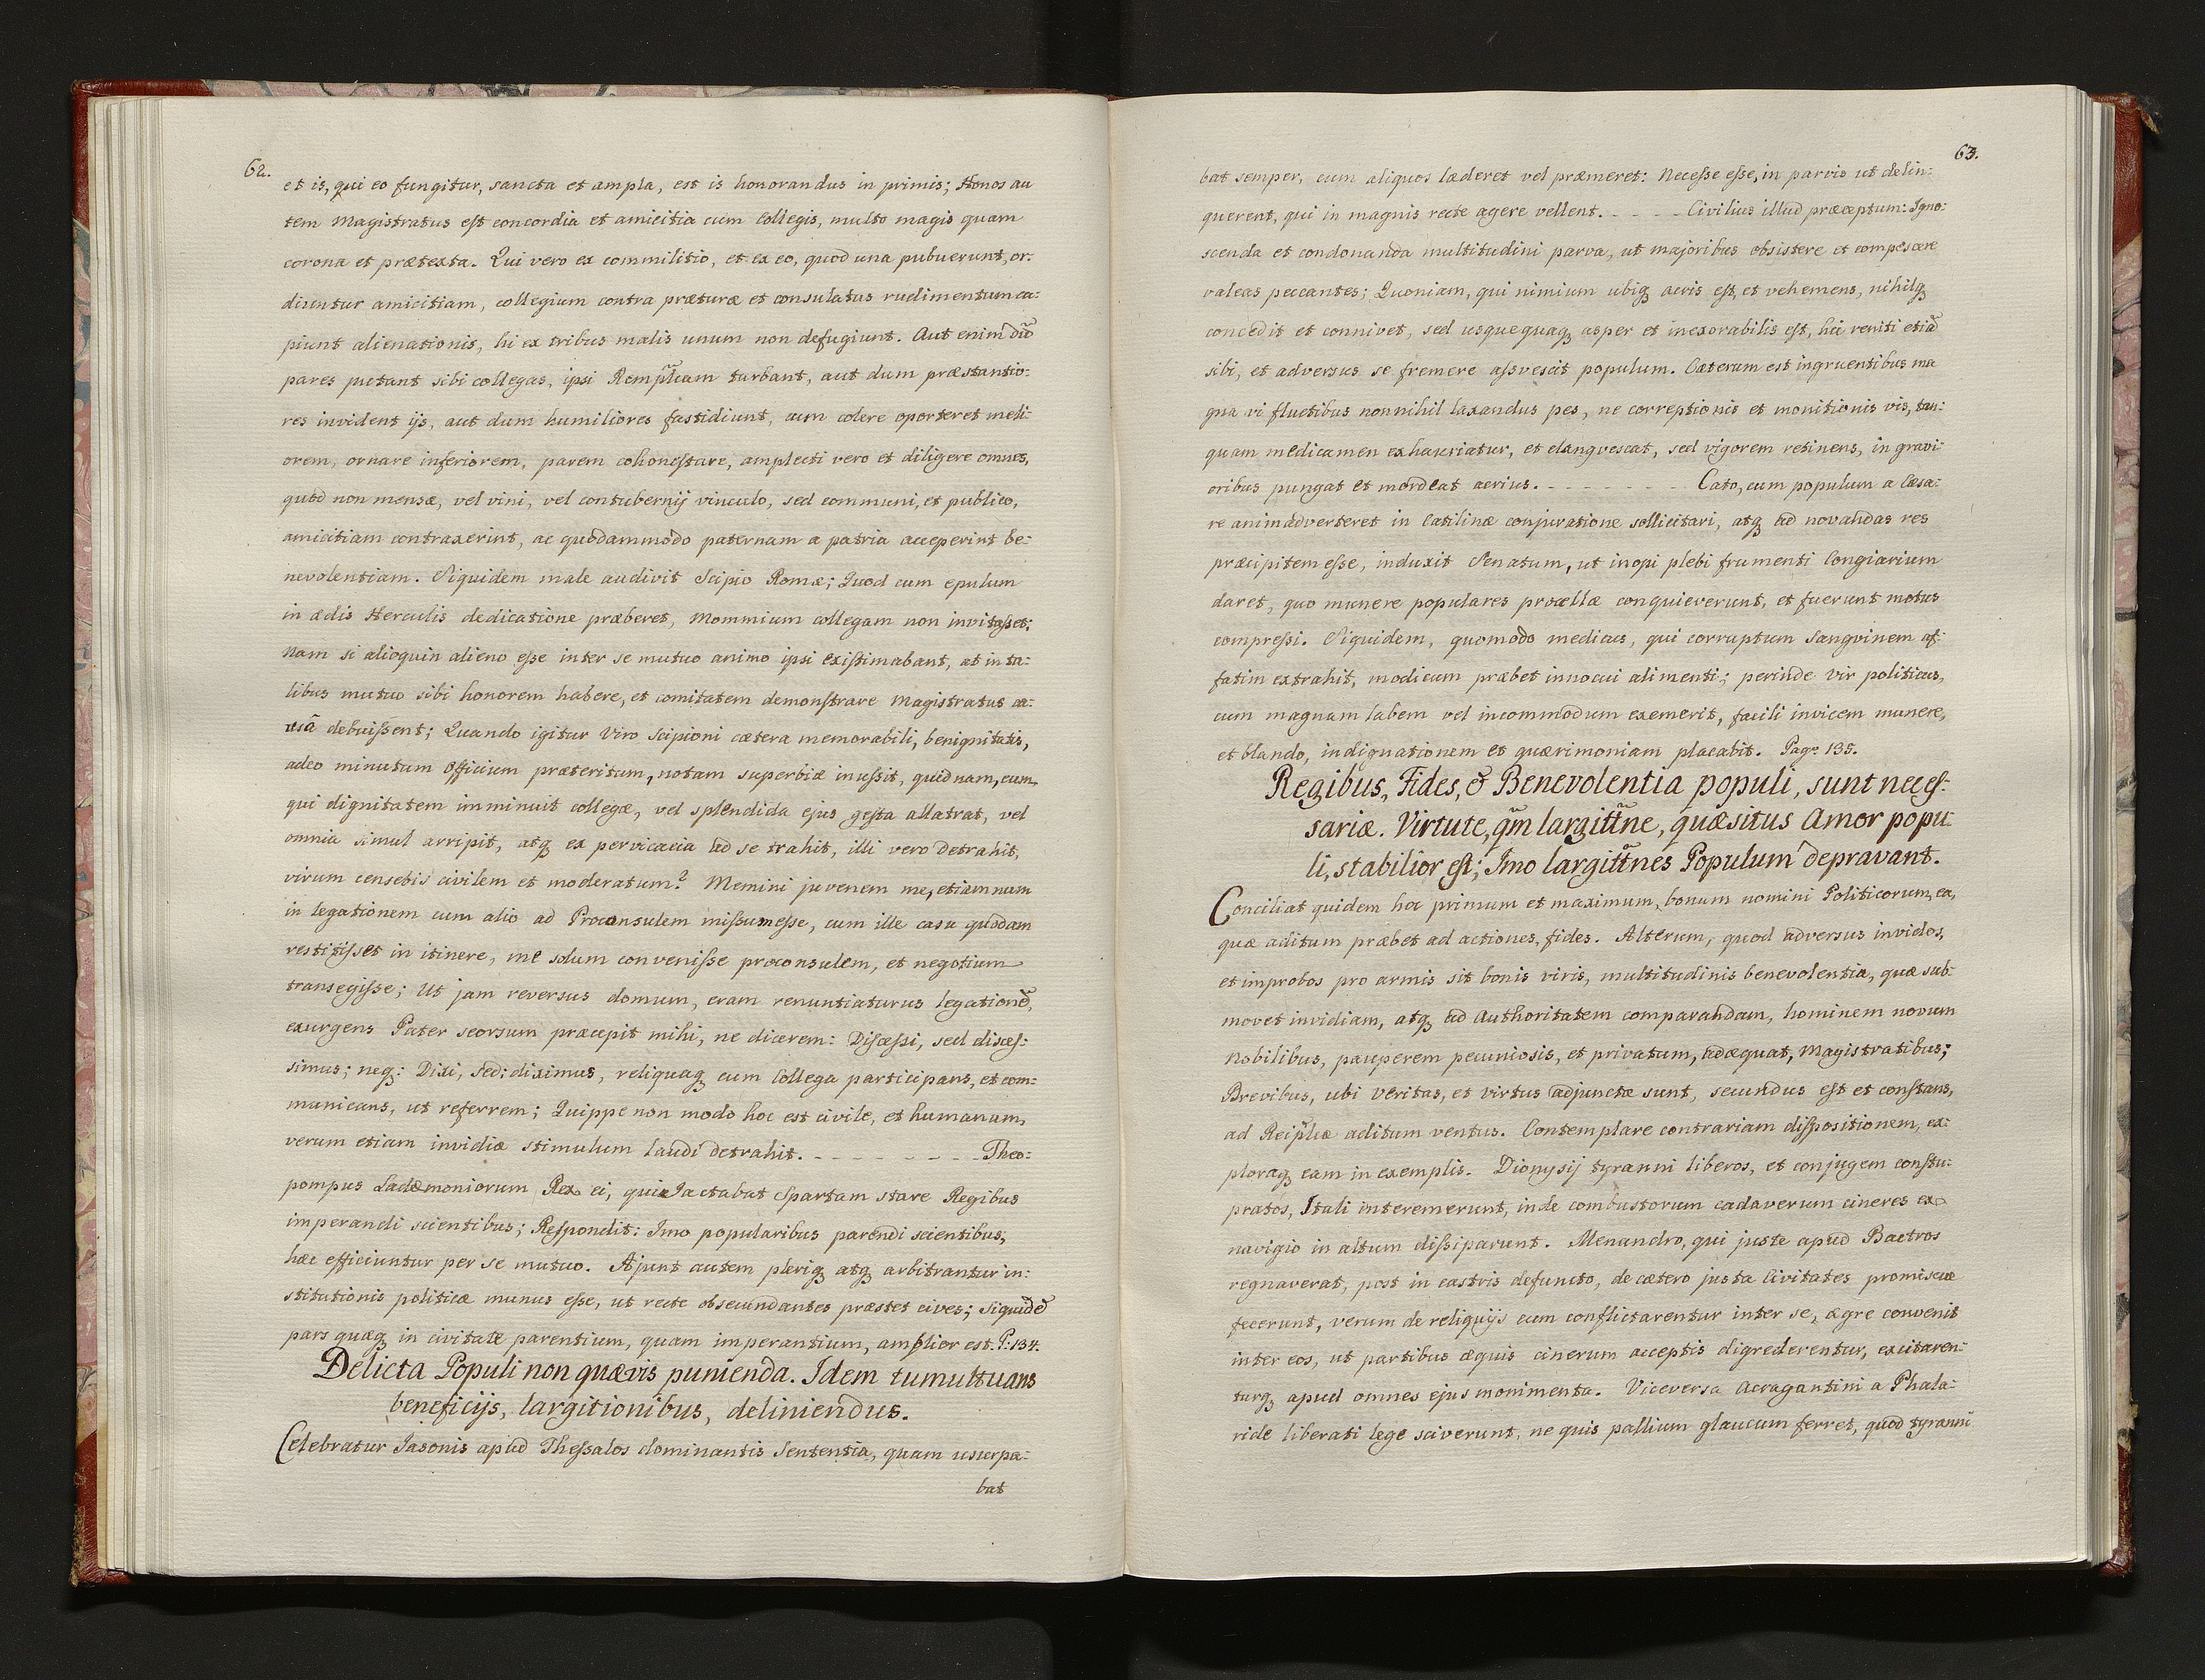 62.
et is, qui eo fungitur, sancta et ampla, est is honorandus in primis; Honos au
tem Magistratus est concordia et amicitia cum Collegis, multo magis quam
corona et prætexta. Qui vero ex commilitio, et ex eo, quod una pubuerunt, or:
diuntur amicitiam, collegium contra præturæ et consulatus rudimentum ca:
piunt alienationis, hi ex tribus malis unum non defugiunt. Aut enim dũ
pares putant sibi collegas, ipsi Remplicam turbant, aut dum præstantio:
res invident ijs, aut dum humiliores fastidiunt, cum colere oporteret meli:
orem, ornare inferiorem, parem cohonestare, amplecti vero et diligere omnes,
quod non mensæ, vel vini, vel contubernij vinculo, sed communi, et publico,
amicitiam contraxerint, ac quodammodo paternam a patria acceperint be:
nevolentiam. Siquidem male audivit Scipio Romæ; Quod cum epulum
in ædis Herculis dedicatione præberet, Mommium collegam non invitasset;
Nam si alioquin alieno esse inter se mutuo animo ipsi existimabant, at in ta:
libus mutuo sibi honorem habere, et comitatem demonstrare Magistratus ca:
usã debuissent; Quando igitur Viro Scipioni cætera memorabili, benignitatis,
adeo minutum Officium præteritum, notam superbiæ inussit, quidnam, eum,
qui dignitatem imminuit collegæ, vel splendida ejus gesta allatrat, vel
omnia simul arripit, atq ex pervicacia ad se trahit, illi vero detrahit,
virum censebis civilem et moderatum? Memini juvenem me, etiamnum
in legationem cum alio ad Proconsulem missum esse, cum ille casu quodam
restitisset in itinere, me solum convenisse proconsulem, et negotium
transegisse; Ut jam reversus domum, eram renuntiaturus legationẽ,
exurgens Pater seorsum præcepit mihi, ne dicerem: Discessi, sed disces:
simus; neq: Dixi, sed: diximus, reliquaq cum Collega participans, et com:
municans, ut referrem; Quippe non modo hoc est civile, et humanum,
verum etiam invidiæ stimulum laudi detrahit. - - - - - - - - Theo:
pompus Lacdæmoniorum Rex ei, qui Jactabat Spartam stare Regibus
imperandi scientibus; Respondit: Imo popularibus parendi scientibus;
hæc efficiuntur per se mutuo. Ajunt autem pleriq atq arbitrantur in:
stitutionis politicæ munus esse, ut recte obsecundantes præstet cives; siquidẽ
pars quæq in civitate parentium, quam imperantium, amplior est. P: 134.
Delicta Populi non quævis punienda. Idem tumultuans
beneficijs, largitionibus, deliniendus.
Celebratur Jasonis apud Thessalos dominantis Sententia, quam usurpa:
bat
63.
bat semper, cum aliquos læderet vel præmeret: Necesse esse, in parvis ut delin:
querent, qui in magnis recte agere vellent. - - - - - Civilius illud præceptum: Igno:
scenda et condonanda multitudini parva, ut majoribus obsistere et compescere
valeas peccantes; Quoniam, qui nimium ubiq acris est, et vehemens, nihilq
concedit et connivet, sed usquequaq asper et inexorabilis est, hic reniti etiã
sibi, et adversus se fremere assvescit populum. Cæterum est ingruentibus ma
gna vi fluctibus nonnihil laxandus pes, ne correptionis et monitionis vis, tan:
quam medicamen exhauriatur, et elangvescat, sed vigorem retinens, in gravi:
oribus pungat et mordeat acrius. - - - - - - - - Cato, cum populum a Cæsa:
re animadverteret in Catilinæ conjuratione sollicitari, atq ad novandas res
præcipitem esse, induxit Senatum, ut inopi plebi frumenti Congiarium
daret, quo munere populares procellæ conquieverunt, et fuerunt motus
compressi. Siquidem, quomodo medicus, qui corruptum sangvinem af:
fatim extrahit, modicum præbet innocui alimenti; perinde vir politicus,
cum magnam labem vel incommodum exemerit, facili invicem munere,
et blando, indignationem et quærimoniam placabit. Pag: 135.
Regibus, Fides, & Benevolentia populi, sunt neces:
sariæ. Virtute, qm̃ largitt̃ne, quæsitus Amor popu:
li, stabilior est; Imo largitt̃nes Populum depravant.
Conciliat quidem hoc primum et maximum bonum nomini Politicorum, ea,
quæ aditum præbet ad actiones, fides. Alterum, quod adversus invidos,
et improbos pro armis sit bonis viris, multitudinis benevolentia, quæ sub:
movet invidiam, atq ad Authoritatem comparandam, hominem novum
Nobilibus, pauperem pecuniosis, et privatum, adæquat, Magistratibus;
Brevibus, ubi veritas, et virtus adjunctæ sunt, secundus est et constans,
ad Reiplicæ aditum ventus. Contemplare contrariam dispositionem, ex:
ploraq eam in exemplis. Dionysij tyranni liberos, et conjugem constu:
pratos, Itali interemerunt, inde combustorum cadaverum cineres ex
navigio in altum dissiparunt. Menandro, qui juste apud Bactros
regnaverat, post in castris defuncto, de cætero justa Civitates promiscue
fecerunt, verum de reliquijs cum conflictarentur inter se, ægre convenit
inter eos, ut partibus æquis cinerum acceptis digrederentur, excitaren:
turq apud omnes ejus monimenta. Viceversa Acragantini a Phala:
ride liberati lege sciverunt, ne quis pallium glaucum ferret, quod tyranni